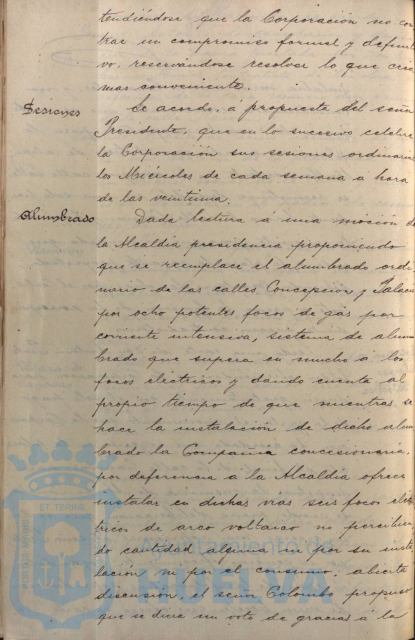 tendiéndose que la Corporación no con
trae un compromiso formal y definiti
vo, reservándose resolver lo que crea
mas conveniente.
Sesiones
Se acordó, á propuesta del señor
Presidente, que en lo sucesivo celebre
la Corporación sus sesiones ordinarias
los Miércoles de cada semana a hora
de las veintiuna.
Alumbrado
Dada lectura á una moción de
la Alcaldia presidencia proponiendo
que se reemplace el alumbrado ordi
nario de las calles Concepción y Palacio
por ocho potentes focos de gás por
corriente intensiva, sistema de alum
brado que supera en mucho á los
focos eléctricos y dando cuenta al
propio tiempo de que mientras se
hace la instalación de dicho alum
brado la Compañia concesionaria,
por deferencia a la Alcaldia ofrece
instalar en dichas vias seis focos eléc
tricos de arco voltaico no percibien
do cantidad alguna ni por su insta
lación ni por el consumo, abierta
discusión, el señor Colombo propuso
que se diese un voto de gracias á la
Ayuntamiento de
HUELVA